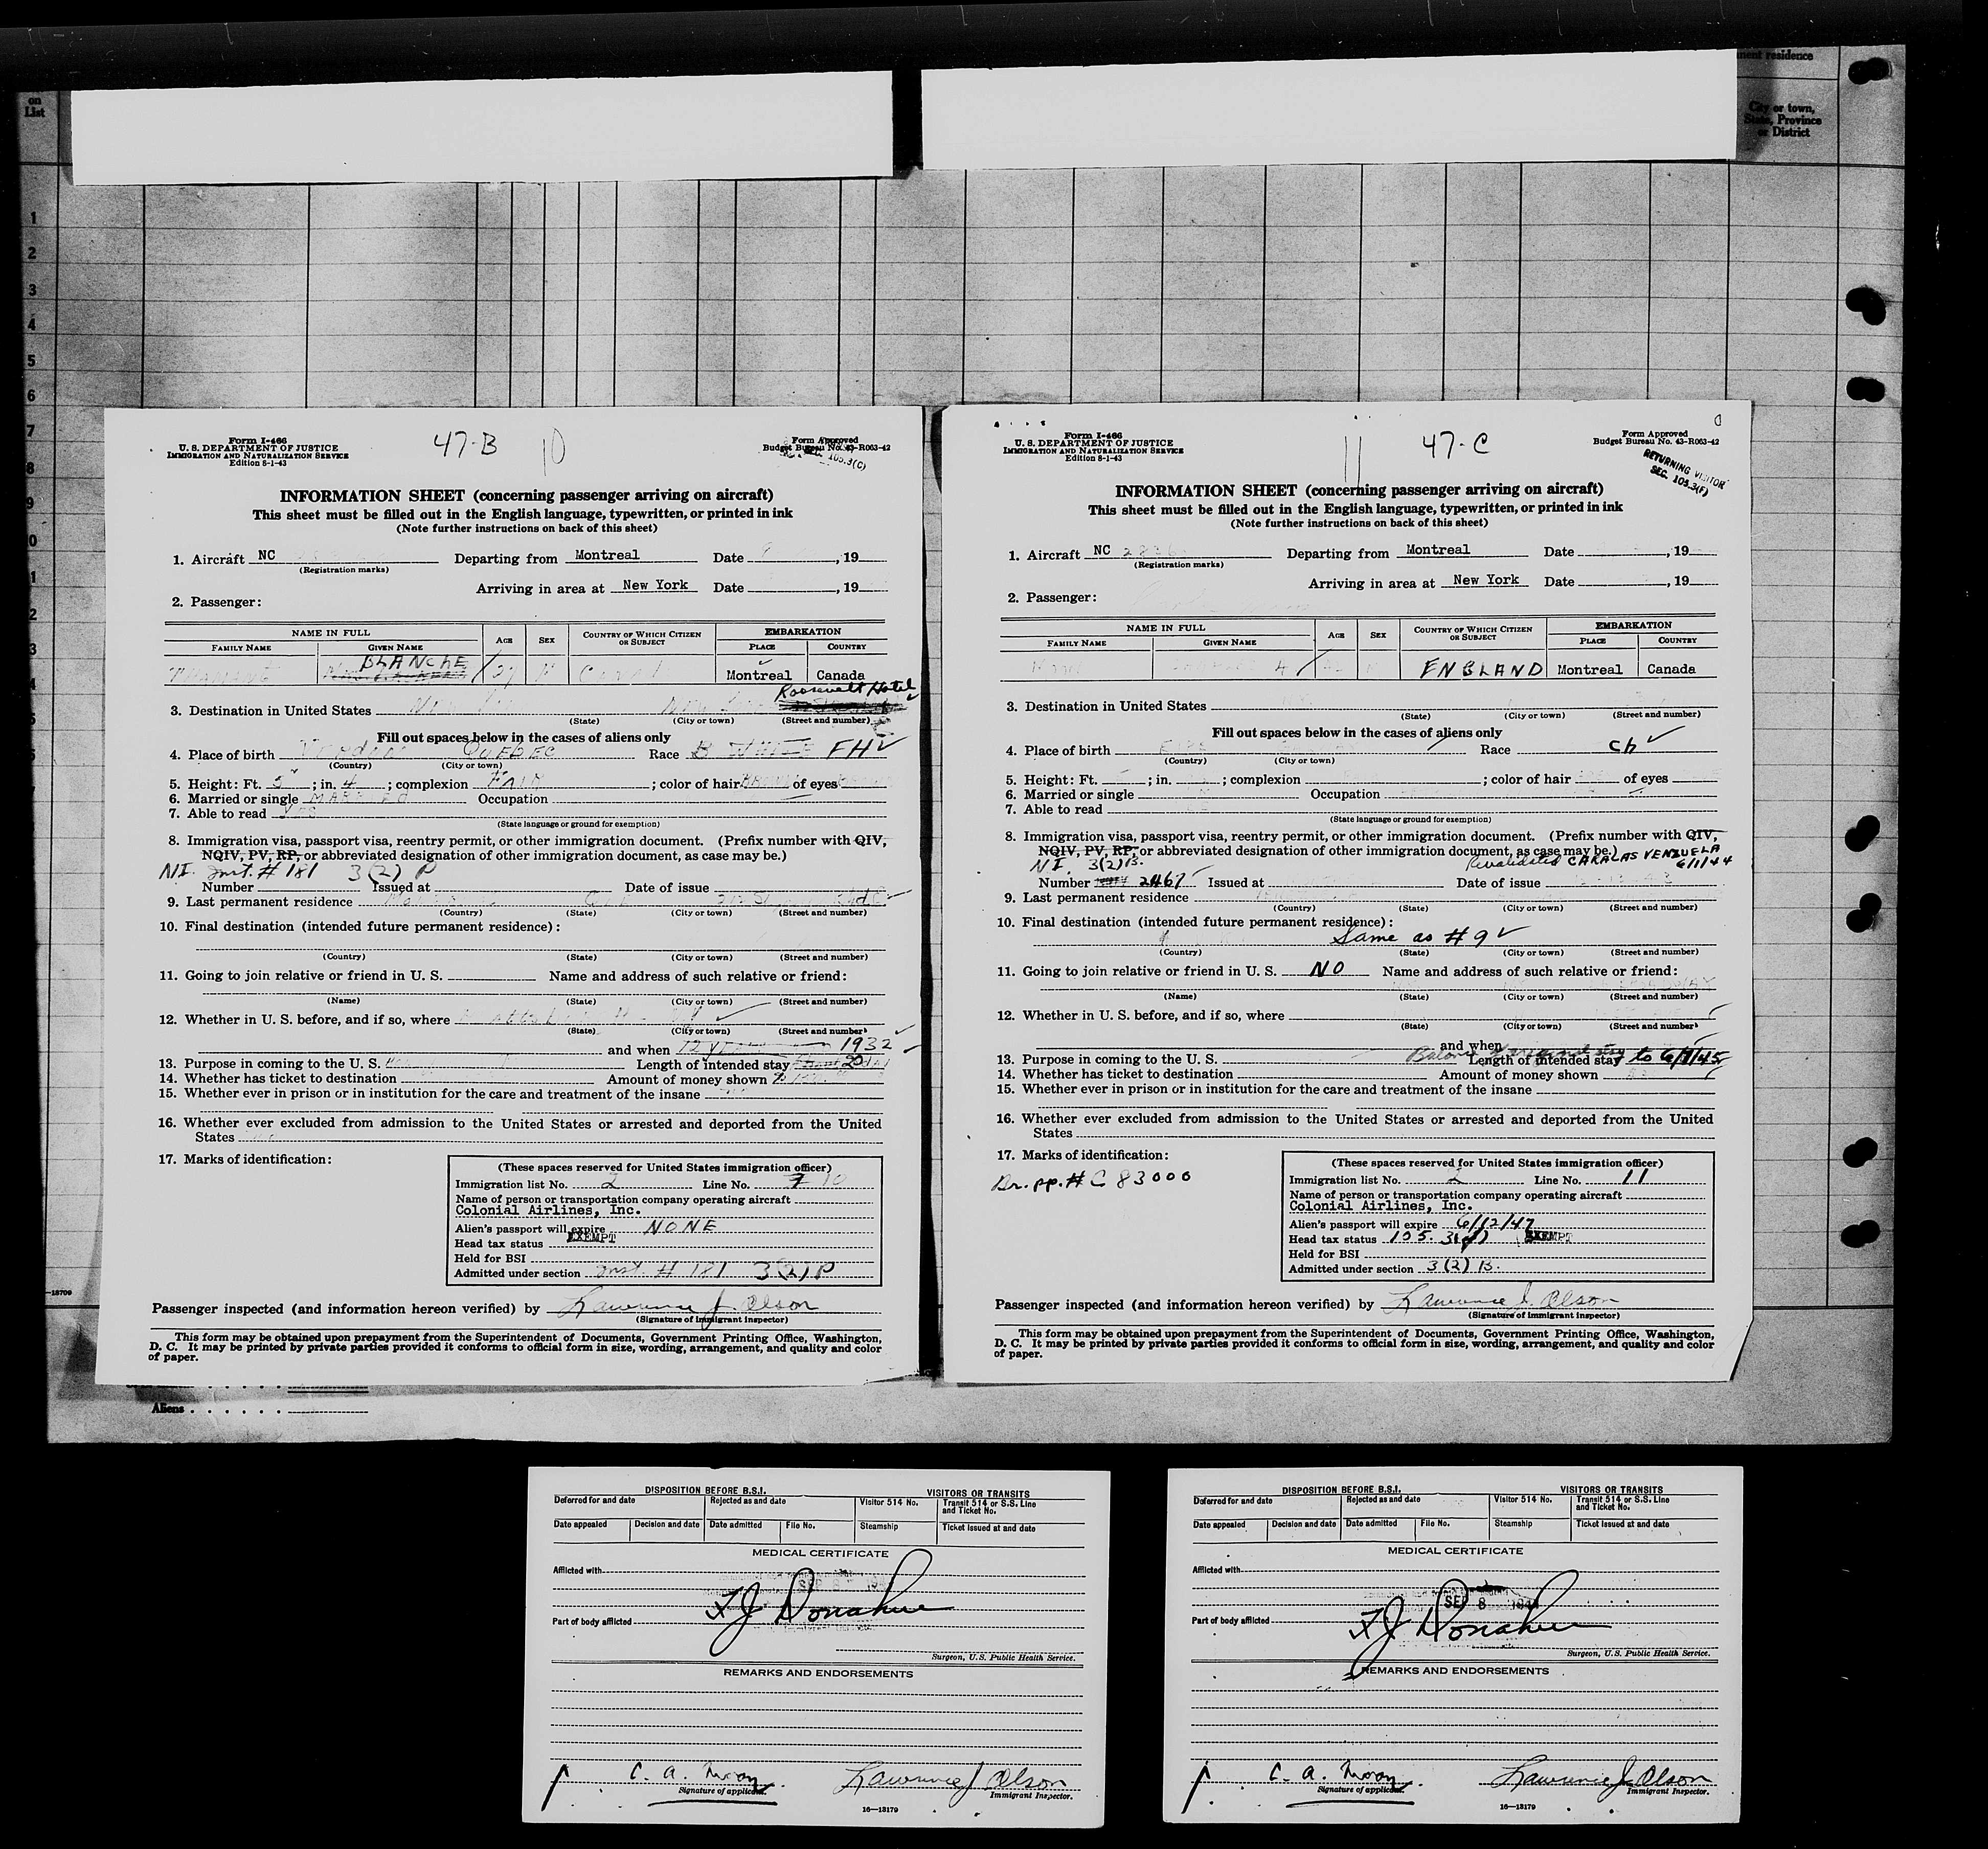 on
List
ment residence
City or town,
State, Province
or District
1
2
3
4
5
6
7
8
9
0
1
2
3
4
5
6
Form I-466
U. S. DEPARTMENT OF JUSTICE
IMMIGRATION AND NATURALIZATION SERVICE
Edition 8-1-43
47-B 10
Form Approved
Budget Bureau No. 43-R063-42
105.3(C)
INFORMATION SHEET (concerning passenger arriving on aircraft)
This sheet must be filled out in the English language, typewritten, or printed in ink
(Note further instructions on back of this sheet)
1. Aircraft NC Departing from Montreal Date , 19
(Registration marks)
Arriving in area at New York Date , 19
2. Passenger:
NAME IN FULL AGE SEX COUNTRY OF WHICH CITIZEN OR SUBJECT EMBARKATION
FAMILY NAME GIVEN NAME PLACE COUNTRY
BLANCHE Montreal Canada
Roosevelt Hotel
3. Destination in United States
(State) (City or town) (Street and number)
Fill out spaces below in the cases of aliens only
4. Place of birth QUEBEC Race FH
(Country) (City or town)
5. Height: Ft. 5 ; in. 4 ; complexion FAIR ; color of hair of eyes
6. Married or single MARRIED Occupation
7. Able to read YES
(State language or ground for exemption)
8. Immigration visa, passport visa, reentry permit, or other immigration document. (Prefix number with QIV,
NQIV, PV, RP, or abbreviated designation of other immigration document, as case may be.)
NI. Inst. # 181 3(2) P
Number Issued at Date of issue
9. Last permanent residence
(Country) (State) (City or town) (Street and number)
10. Final destination (intended future permanent residence):
(Country) (State) (City or town) (Street and number)
11. Going to join relative or friend in U. S. Name and address of such relative or friend:
(Name) (State) (City or town) (Street and number)
12. Whether in U. S. before, and if so, where
(State) (City or town) (Street and number)
and when 1932
13. Purpose in coming to the U. S. Length of intended stay
14. Whether has ticket to destination Amount of money shown
15. Whether ever in prison or in institution for the care and treatment of the insane
16. Whether ever excluded from admission to the United States or arrested and deported from the United
States
17. Marks of identification:
(These spaces reserved for United States immigration officer)
Immigration list No. 2 Line No. 10
Name of person or transportation company operating aircraft
Colonial Airlines, Inc.
Alien's passport will expire NONE
Head tax status EXEMPT
Held for BSI
Admitted under section Inst. # 181 3(2) P
Passenger inspected (and information hereon verified) by Lawrence J. Olson
(Signature of immigrant inspector)
This form may be obtained upon prepayment from the Superintendent of Documents, Government Printing Office, Washington,
D. C. It may be printed by private parties provided it conforms to official form in size, wording, arrangement, and quality and color
of paper.
-13709
Aliens
Form I-466
U. S. DEPARTMENT OF JUSTICE
IMMIGRATION AND NATURALIZATION SERVICE
Edition 8-1-43
11 47-C
Form Approved
Budget Bureau No. 43-R063-42
RETURNING VISITOR
SEC. 105.3(F)
INFORMATION SHEET (concerning passenger arriving on aircraft)
This sheet must be filled out in the English language, typewritten, or printed in ink
(Note further instructions on back of this sheet)
1. Aircraft NC Departing from Montreal Date , 19
(Registration marks)
Arriving in area at New York Date , 19
2. Passenger:
NAME IN FULL AGE SEX COUNTRY OF WHICH CITIZEN OR SUBJECT EMBARKATION
FAMILY NAME GIVEN NAME PLACE COUNTRY
ENGLAND Montreal Canada
3. Destination in United States
(State) (City or town) (Street and number)
Fill out spaces below in the cases of aliens only
4. Place of birth Race Ch
(Country) (City or town)
5. Height: Ft. ; in. ; complexion ; color of hair of eyes
6. Married or single Occupation
7. Able to read
(State language or ground for exemption)
8. Immigration visa, passport visa, reentry permit, or other immigration document. (Prefix number with QIV,
NQIV, PV, RP, or abbreviated designation of other immigration document, as case may be.)
NI. 3(2)B. Revalidated CARACAS VENZUELA
6/1/44
Number 2467 Issued at Date of issue
9. Last permanent residence
(Country) (State) (City or town) (Street and number)
10. Final destination (intended future permanent residence):
Same as # 9
(Country) (State) (City or town) (Street and number)
11. Going to join relative or friend in U. S. NO Name and address of such relative or friend:
(Name) (State) (City or town) (Street and number)
12. Whether in U. S. before, and if so, where
(State) (City or town) (Street and number)
and when
13. Purpose in coming to the U. S. Length of intended stay to 6/1/45
14. Whether has ticket to destination Amount of money shown
15. Whether ever in prison or in institution for the care and treatment of the insane
16. Whether ever excluded from admission to the United States or arrested and deported from the United
States
17. Marks of identification:
Br. pp. # C 83000
(These spaces reserved for United States immigration officer)
Immigration list No. 2 Line No. 11
Name of person or transportation company operating aircraft
Colonial Airlines, Inc.
Alien's passport will expire 6/12/47
Head tax status 105. 3(f) EXEMPT
Held for BSI
Admitted under section 3(2) B.
Passenger inspected (and information hereon verified) by Lawrence J. Olson
(Signature of immigrant inspector)
This form may be obtained upon prepayment from the Superintendent of Documents, Government Printing Office, Washington,
D. C. It may be printed by private parties provided it conforms to official form in size, wording, arrangement, and quality and color
of paper.
DISPOSITION BEFORE B.S.I. VISITORS OR TRANSITS
Deferred for and date Rejected as and date Visitor 514 No. Transit 514 or S.S. Line and Ticket No.
Date appealed Decision and date Date admitted File No. Steamship Ticket issued at and date
MEDICAL CERTIFICATE
Afflicted with
SEP 8
F J Donahue
Part of body afflicted
Surgeon, U.S. Public Health Service.
REMARKS AND ENDORSEMENTS
C. A. Moon Lawrence J Olson
Signature of applicant. Immigrant Inspector.
16—13179
DISPOSITION BEFORE B.S.I. VISITORS OR TRANSITS
Deferred for and date Rejected as and date Visitor 514 No. Transit 514 or S.S. Line and Ticket No.
Date appealed Decision and date Date admitted File No. Steamship Ticket issued at and date
MEDICAL CERTIFICATE
Afflicted with
SEP 8 1944
F J Donahue
Part of body afflicted
Surgeon, U.S. Public Health Service.
REMARKS AND ENDORSEMENTS
C. A. Moon Lawrence J Olson
Signature of applicant. Immigrant Inspector.
16—13179